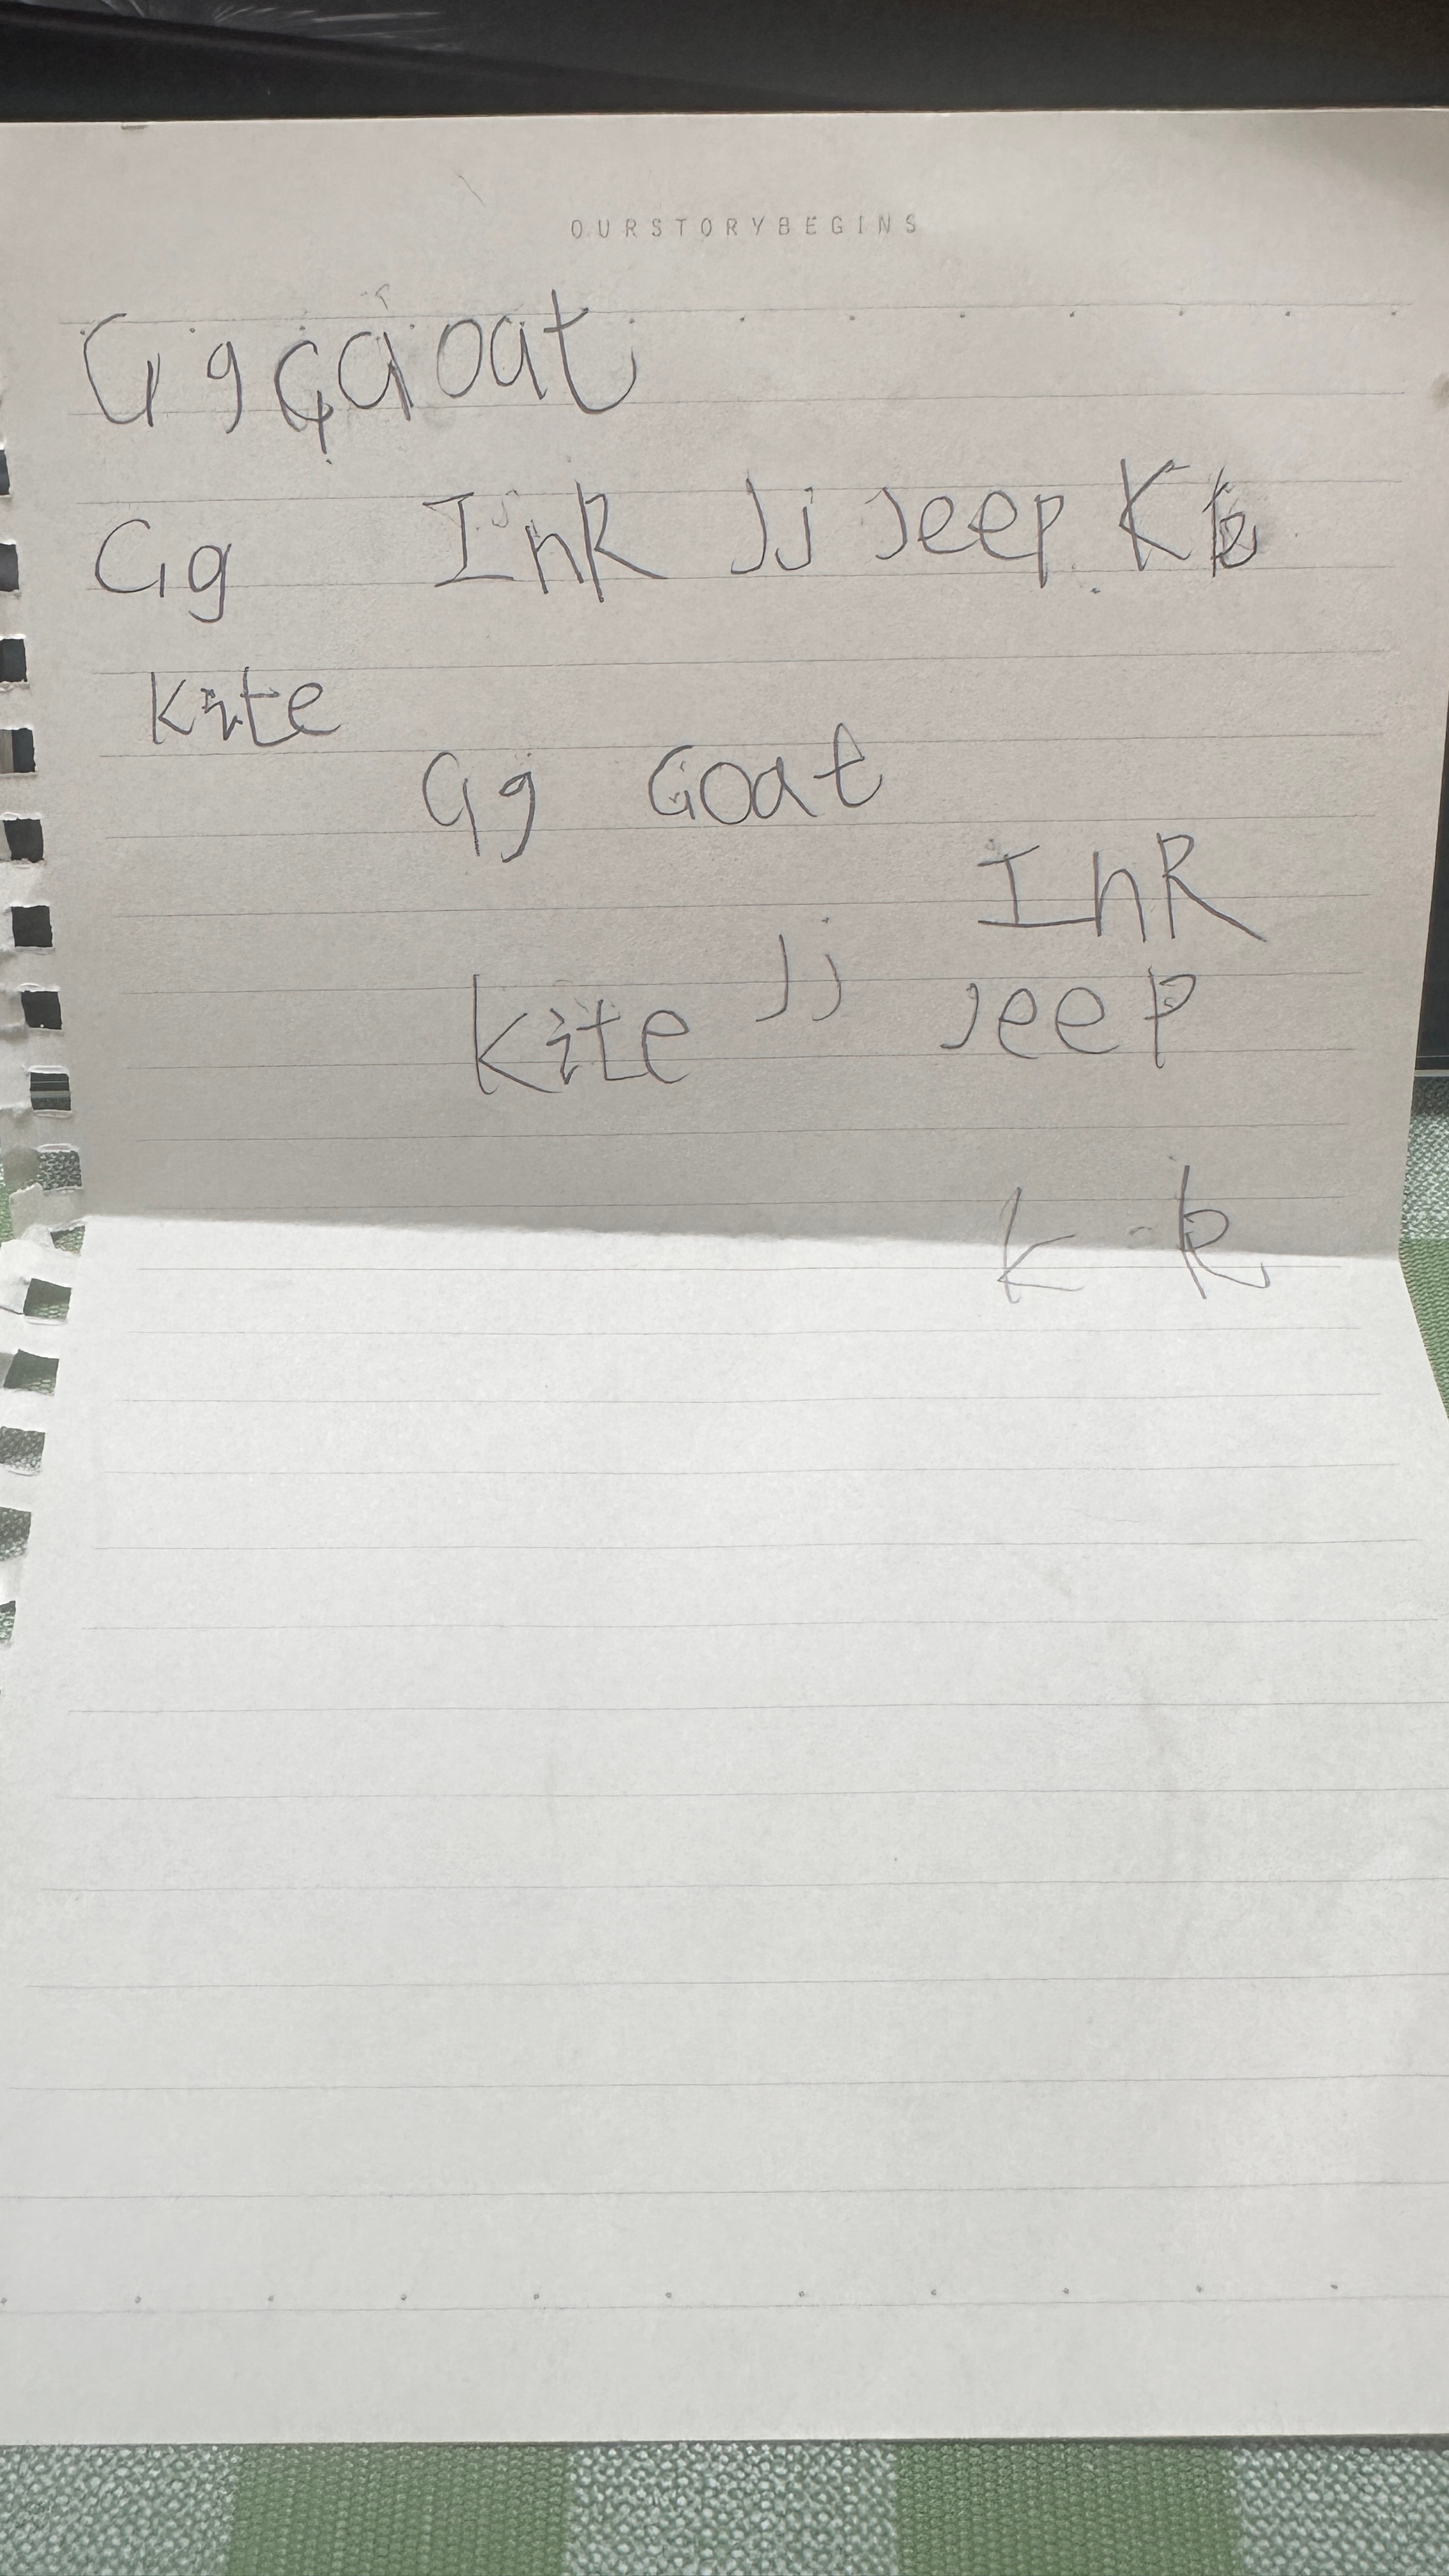 OURSTORYBEGINS
G g G G oat
Gg InR Jj Jeep K k
kite
Gg Goat
InR
Kite Jj Jeep
k k